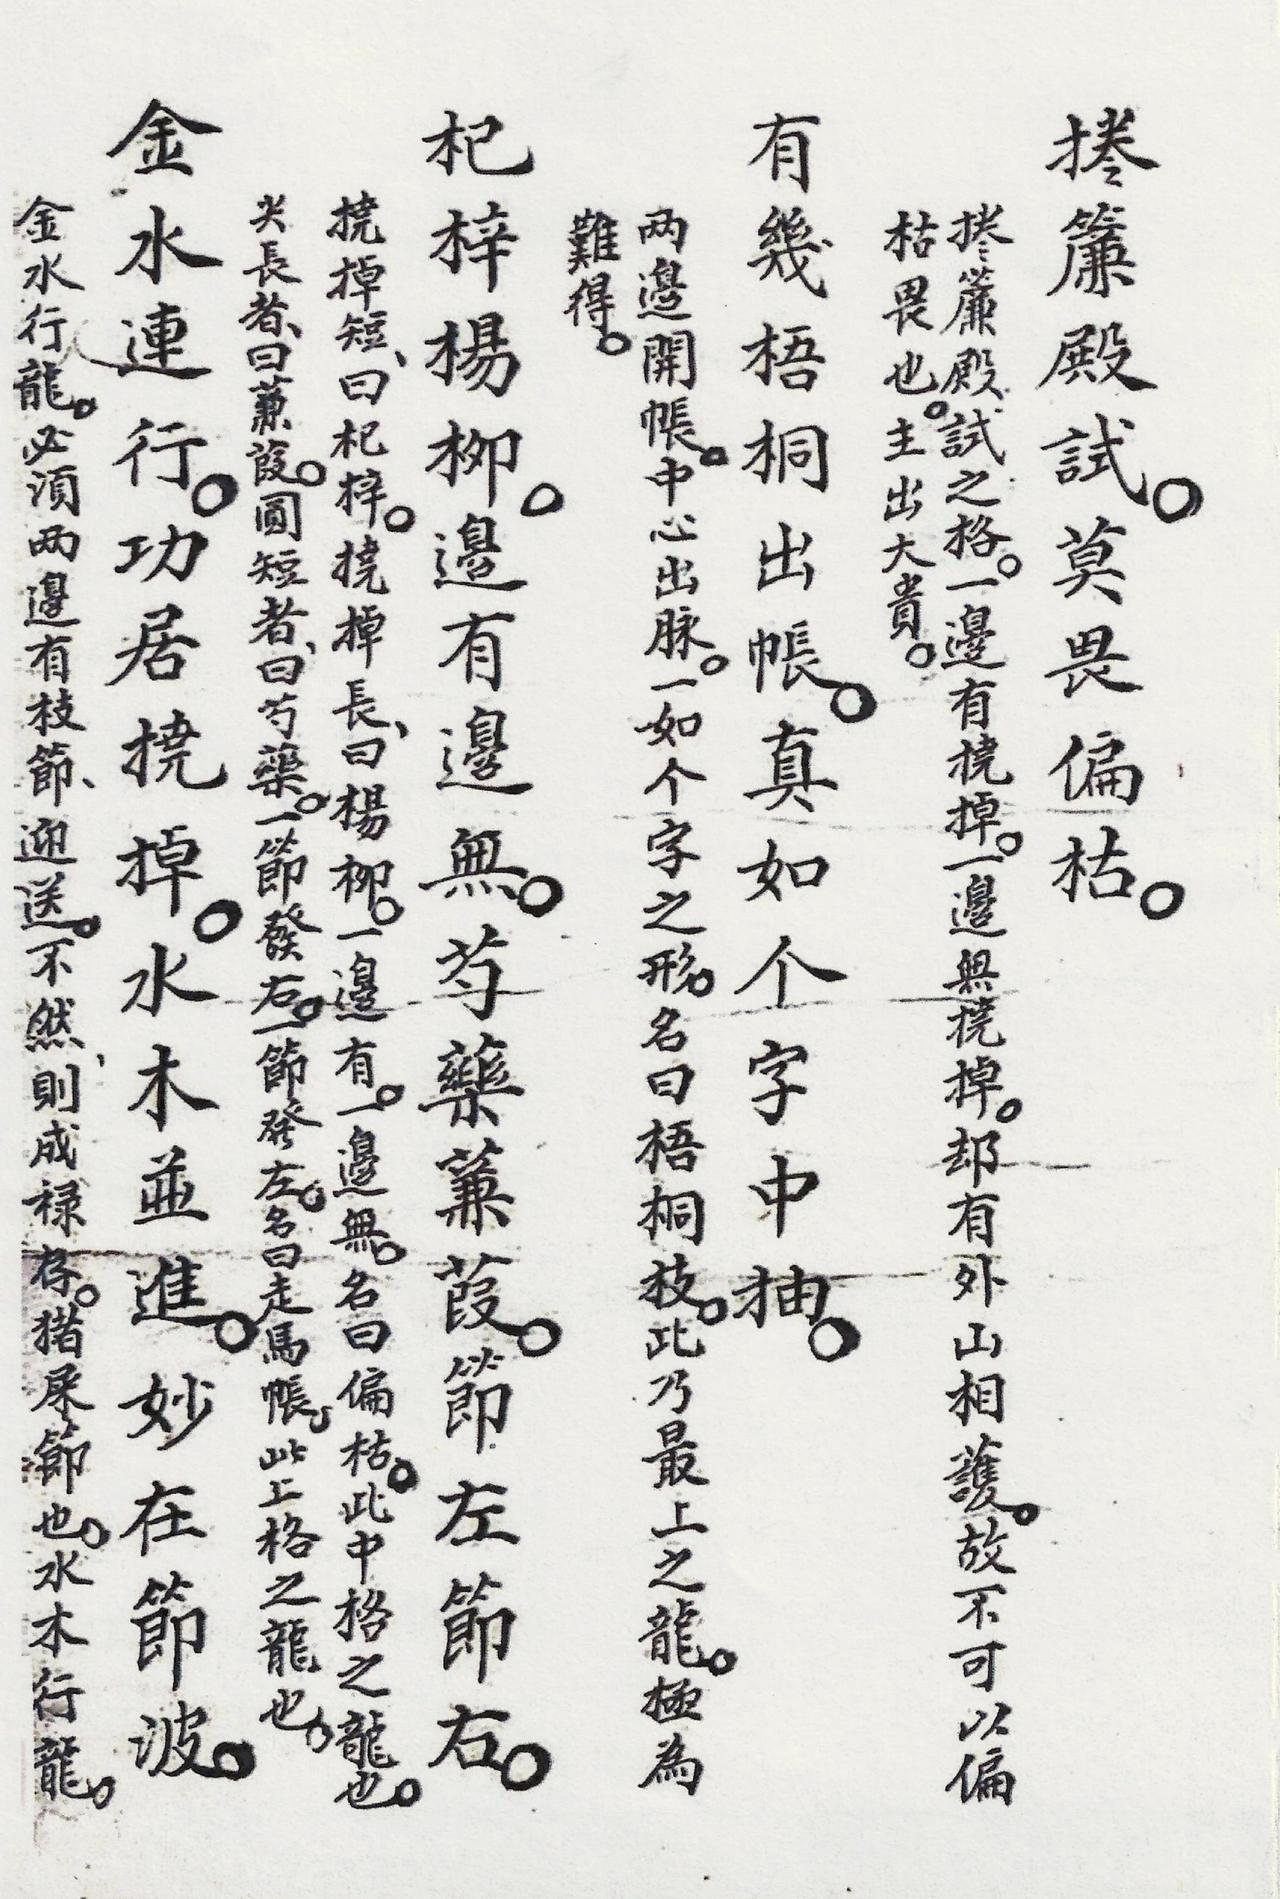 捲簾殿試。莫畏偏枯。
捲簾殿試之格。一邊有撓掉。一邊無撓掉。却有外山相護。故不可以偏
枯畏也。主出大貴。
有幾梧桐出帳。真如个字中抽。
两邊開帳。中心出脉。一如个字之形。名曰梧桐枝。此乃最上之龍。極為
難得。
杞梓楊柳。邊有邊無。芍藥蒹葭。節左節右。
撓掉短、曰杞梓。撓掉長、曰楊柳。一邊有。一邊無。名曰偏枯。此中格之龍也。
尖長者、曰蒹葭。圓短者、曰芍藥。一節發右。一節發左。名曰走馬帳。此上格之龍也。
金水連行。功居撓掉。水木並進。妙在節波。
金水行龍。必須两邊有枝節、迎送。不然、則成禄存。猪屎節也。水木行龍。